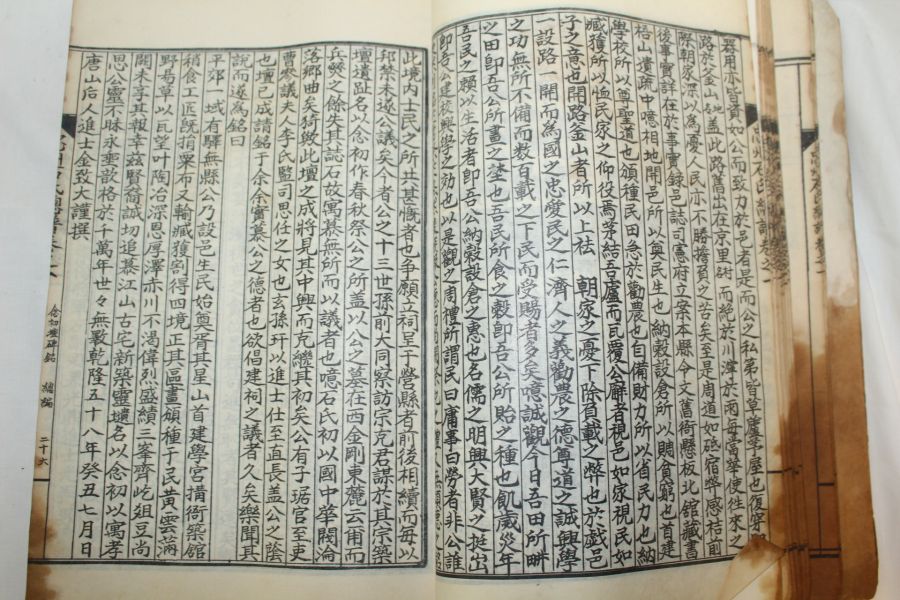 器用亦皆質如公而致力於邑者是而公之私第皆草廬茅屋也復穿
路於釜山地盖此路舊出在京里坊而絶於川潭於雨每當華使往來之
際朝家深以為憂人民亦不勝擔負之苦矣至是周道如砥宿弊感祛前
後事實詳在於事實錄邑誌司憲府立案本縣令文舊衙縣板北舘藏書
格山遺疏中噫相地開邑所以奠民生也納穀設倉所以賙貧窮也首建
學校所以尊聖道也頒種民田急於勸農也自備財力所以省民力也納
臧獲所以恤民家之仰役焉孚結吾廬而瓦覆公廨者視邑如家視民如
子之意也開路金山者所以上祛 朝家之憂下除負載之弊也於戱邑
一設路一開而為國之忠愛民之仁濟人之義勸農之德尊道之誠興學
之功無所不備而数百載之下民而受賜者多矣噫誠觀今日吾田所畊
之田即吾公所畫之塋也吾民所食之穀即吾公所貽之種也飢歲災年
吾民之賴以生活者即吾公納穀設倉之惠也名儒之明興大賢之挺出
即吾公建校興學之効也以是觀之周禮所謂民曰庸事曰勞者非公誰
此境内士民之所共甚慨者也争願立祠呈于營縣者前後相續而毎以
邱禁未遂公議矣今者公之十三世孫前大同察訪宗亢君謀於其宗築
壇遺趾名以念初作春秋祭公之所盖以公之墓在西金剛東麓云甫而
兵燹之餘失其誌石故寓慕無所而以議者也噫石氏初以國中華閥淪
落鄉曲矣猗歟此壇之成將見其中興而克繼其初矣公有子琚官至吏
曹叅議夫人李氏監司思任之女也玄孫玶以進士仕至直長盖公之蔭
也壇已成請銘于余余實慕公之德者也欲倡建祠之議者久矣樂聞其
說而遂為銘曰
平郊一域有驛無縣公乃設邑生民始奠胥其星山首建學宮搆衙築舘
稍食工匠既捐粟布又輸臧獲割得四境正其區畫頒種于民黃雲滿
野易草以瓦望叶陶冶深恩厚澤赤川不渴偉烈盛績三峯齊屹俎豆尚
闕未享其報幸玆賢裔誠切追慕江山古宅新築靈壝名以念初以寓孝
思公靈不昧永垂歆格於千萬世々無斁乾隆五十八年癸丑七月日
唐山后人進士金致大謹撰
念初壇碑銘 總編 二十六